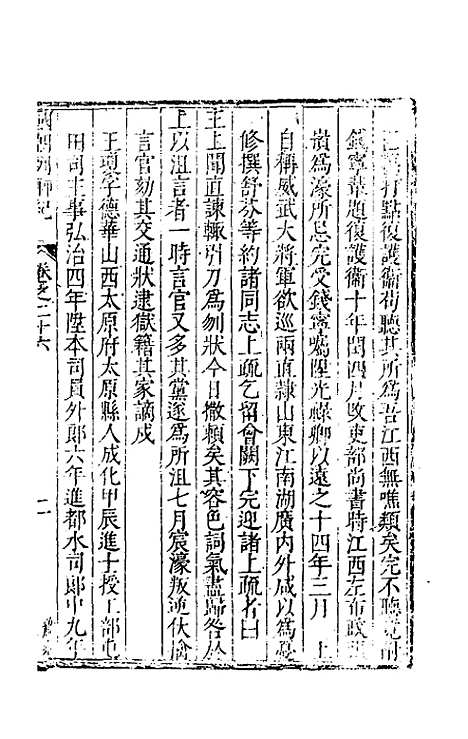 打點復護衞苟聽其所爲吾江西無噍類矣完不聽竟討
錢寧輩題復護衞十年閏四月改吏部尚書時江西左布政
嶽爲濠所忌完受錢寧囑陞光祿卿以遠之十四年三月　上
自稱威武大將軍欲巡兩直隷山東江南湖廣內外咸以爲憂
修撰舒芬等約諸同志上疏乞留會闕下完迎諸上疏者曰
主上聞直諫輒引刀爲刎狀今日撒賴矣其容色詞氣盡歸咎於
上以沮言者一時言官又多其黨遂爲所沮七月宸濠叛逆伏誅
言官劾其交通狀逮獄籍其家謫戍
王瓊字德華山西太原府太原縣人成化甲辰進士授工部屯
田司主事弘治四年陞本司員外郎六年進都水司郎中九年
國朝列卿記
卷之二十六
二